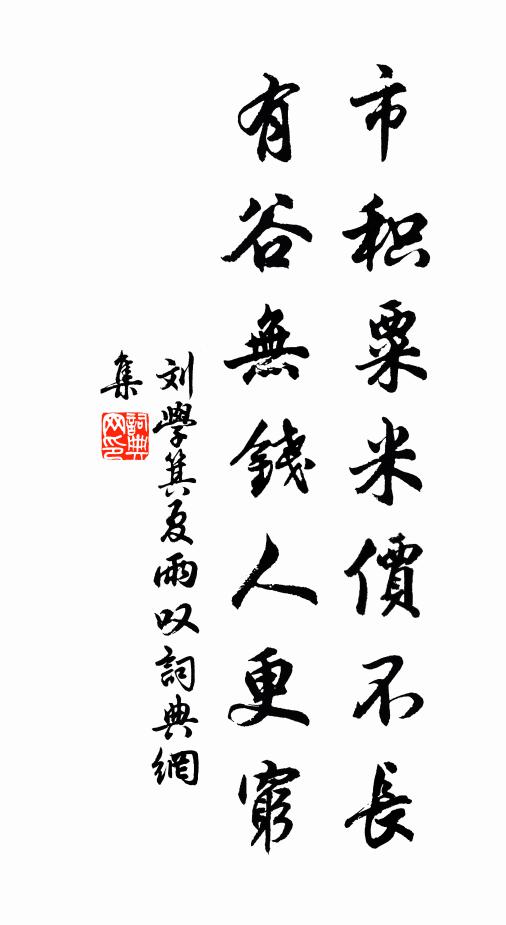 市积粟米價不長
有谷無錢人更窮
刘學箕夏雨叹詞典網
集
詞典网印